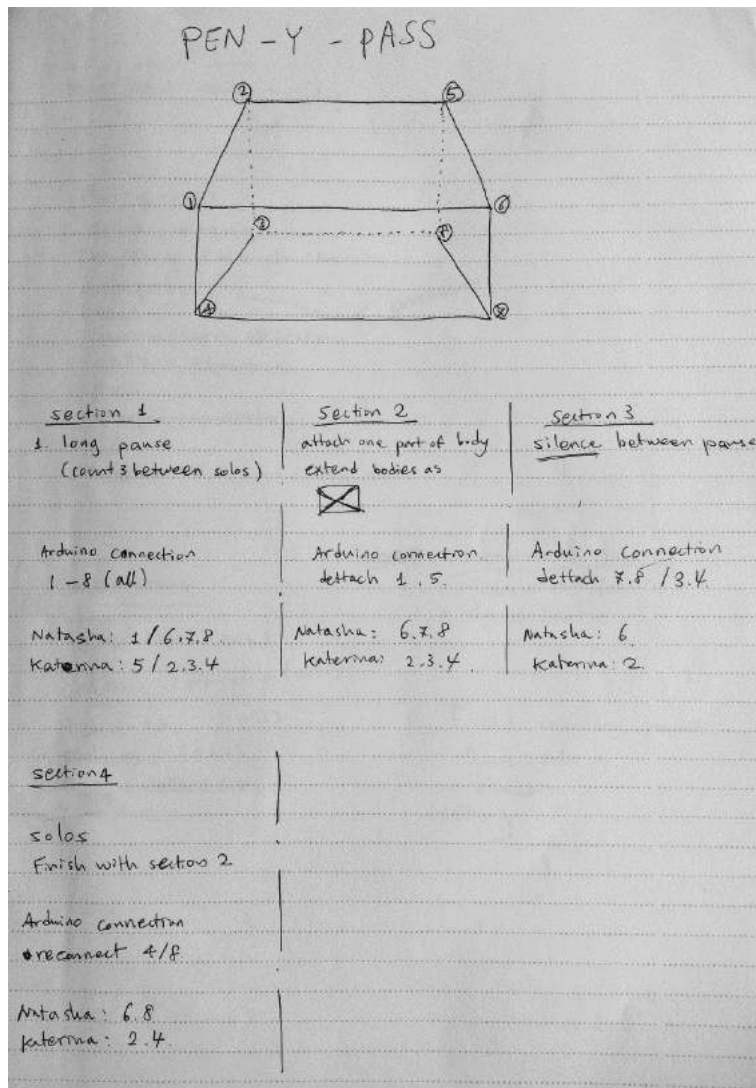 PEN - Y - PASS
2
5
1
6
3
8
4
7
section 1
1. long pause
(count 3 between solos)
Arduino connection
1 - 8 (all)
Natasha: 1 / 6.7.8
Katerina: 5 / 2.3.4
Section 2
attach one part of body
extend bodies as
Arduino connection
dettach 1, 5.
Natasha: 6.7.8
Katerina: 2.3.4
Section 3
silence between pause
Arduino connection
dettach 7.8 / 3.4.
Natasha: 6
Katerina: 2.
section 4
solos
Finish with section 2
Arduino connection
reconnect 4/8
Natasha: 6.8
Katerina: 2.4.